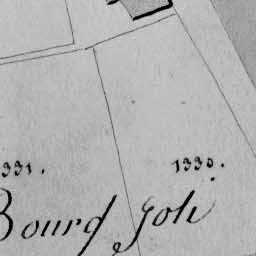 331. 1330.
Bourg Joli